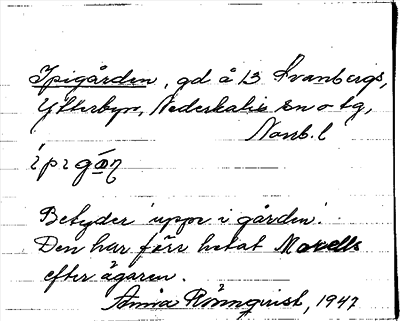 Ipigården, gd å 13 Svanbergs,
Ytterbyn, Nederkalix sn o tg,
Norrb. l
i p i gån
Betyder 'uppe i gården'.
Den har förr hetat Morells
efter ägaren.
Anna Rönnqvist, 1947